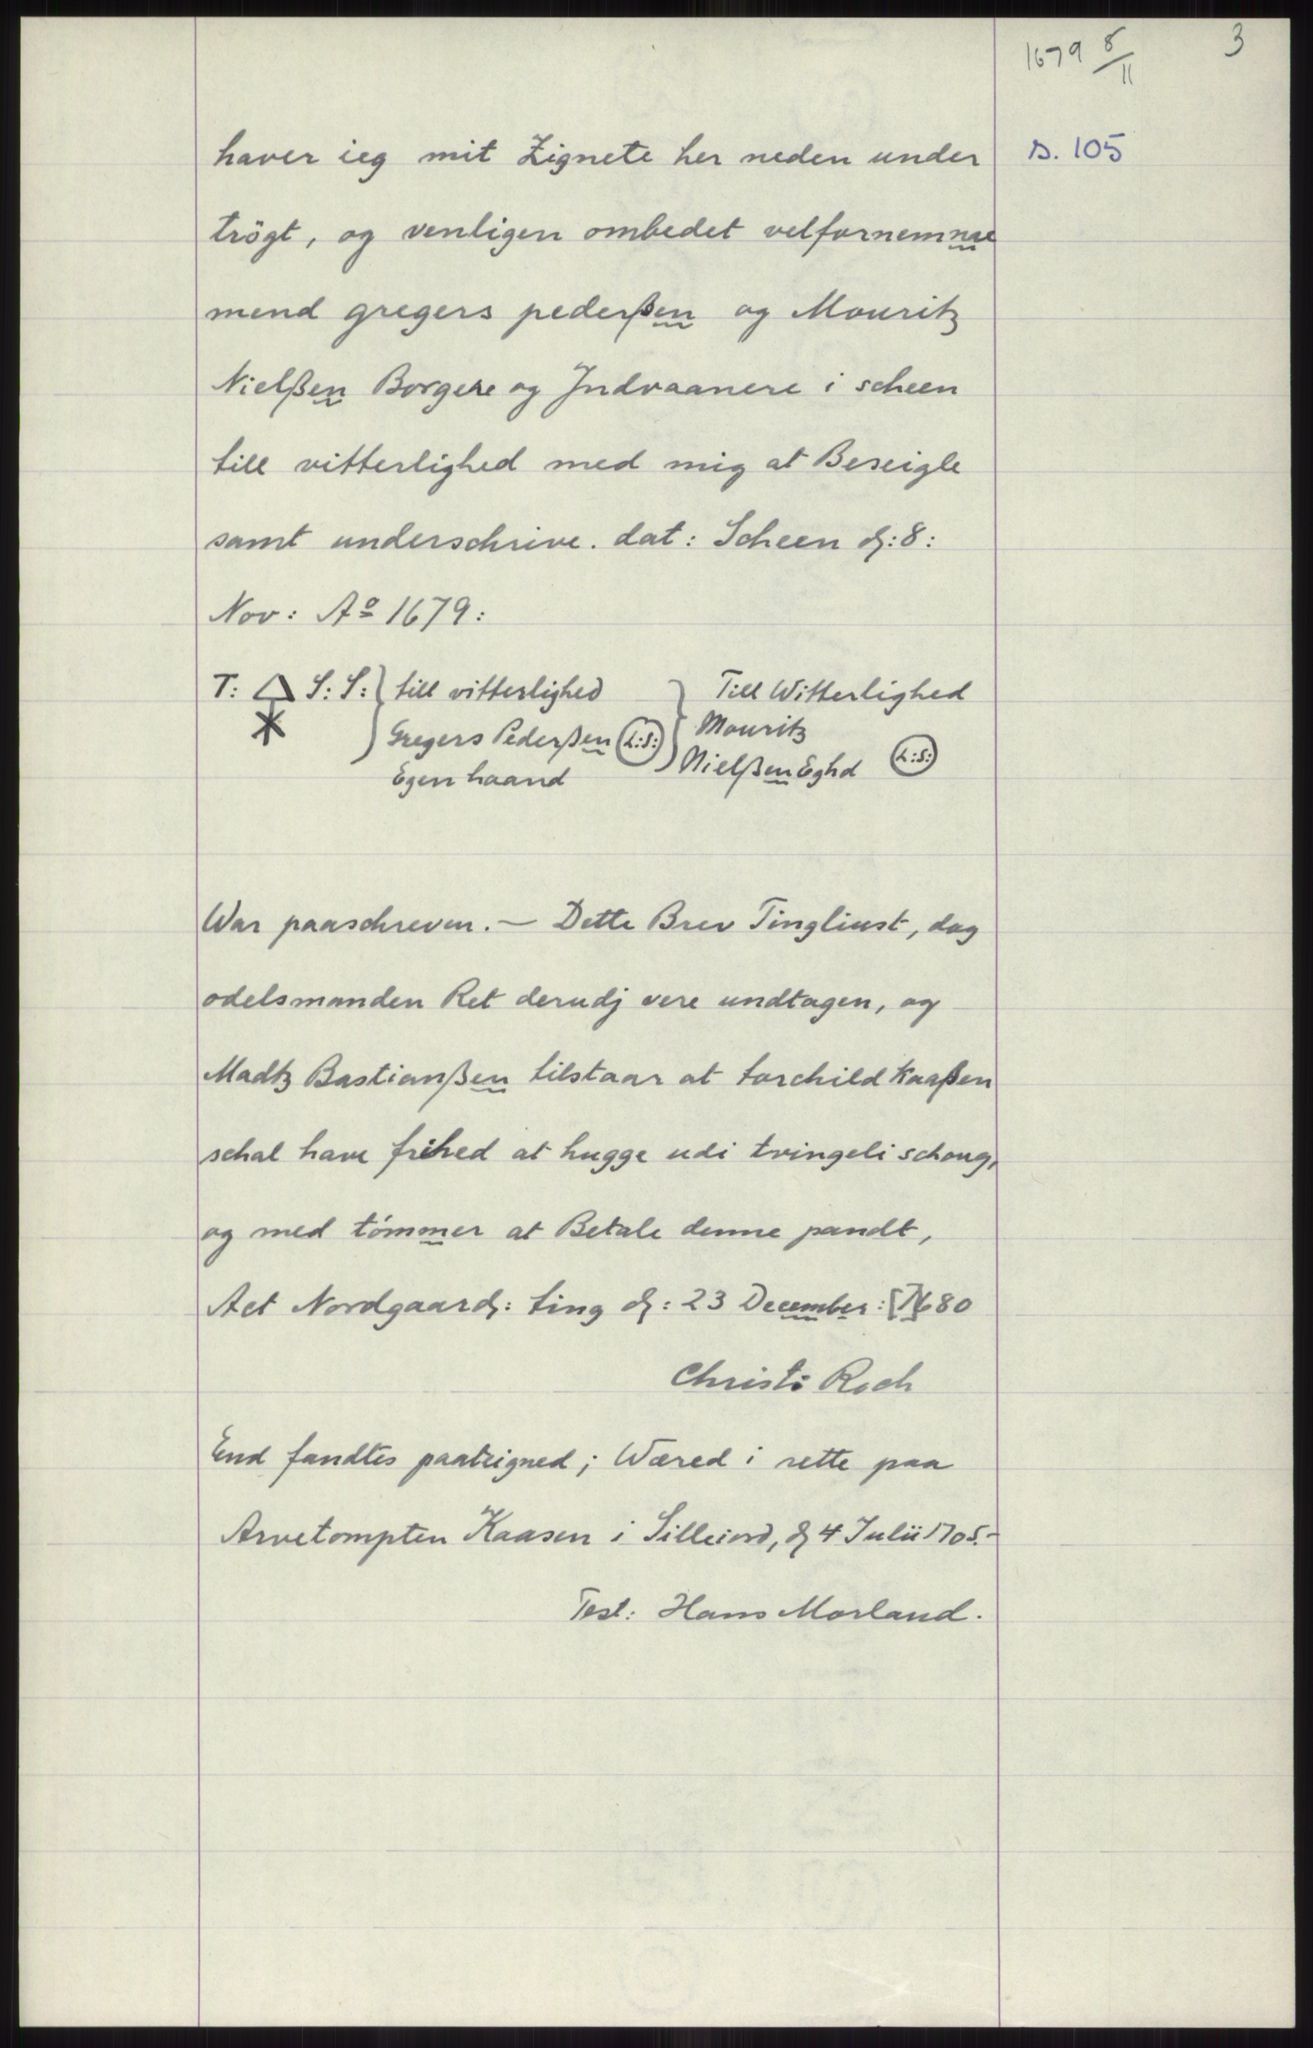 1679 8/11
3
s. 105
haver ieg mit Zignete her neden under
trögt, og venligen ombedet velfornemnae
mend gregers pederßen og Mouritz
Nielßen Borgere og Jndvaanere i scheen
till vitterlighed med mig at Beseigle
samt underschrive. dat: Scheen dȷ: 8:
Nov: Aº 1679:
T: S: S: till vitterlighed
Gregers Pederßen L:S:
Egen haand
Till Witterlighed
Mouritz
Nielßen Eghd L:S:
War paaschreven. — Dette Brev Tingliust, dog
odelsmanden Ret derudj vere undtagen, og
Madtz Bastianßen tilstaar at torchild Kaaßen
schal have frihed at hugge udi tvingeli schoug,
og med tómmer at Betale denne pandt,
Act Nordgaardȷ: ting dȷ: 23 December: [1]680
Christ: Roch
End fandtes paateigned; Wæred i rette paa
Arvetompten Kaasen i Silleiord, dȷ 4 Julii 1705.-
Test: Hans Morland.